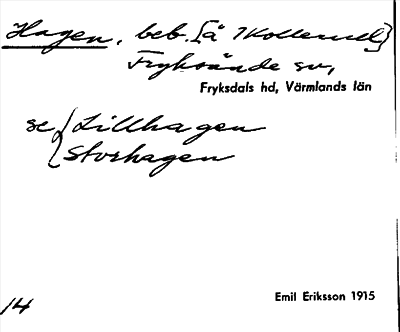 Hagen, beb. [å 7 Kollerud]
Fryksände sn,
Fryksdals hd, Värmlands län
se { Lillhagen
Storhagen
Emil Eriksson 1915
14